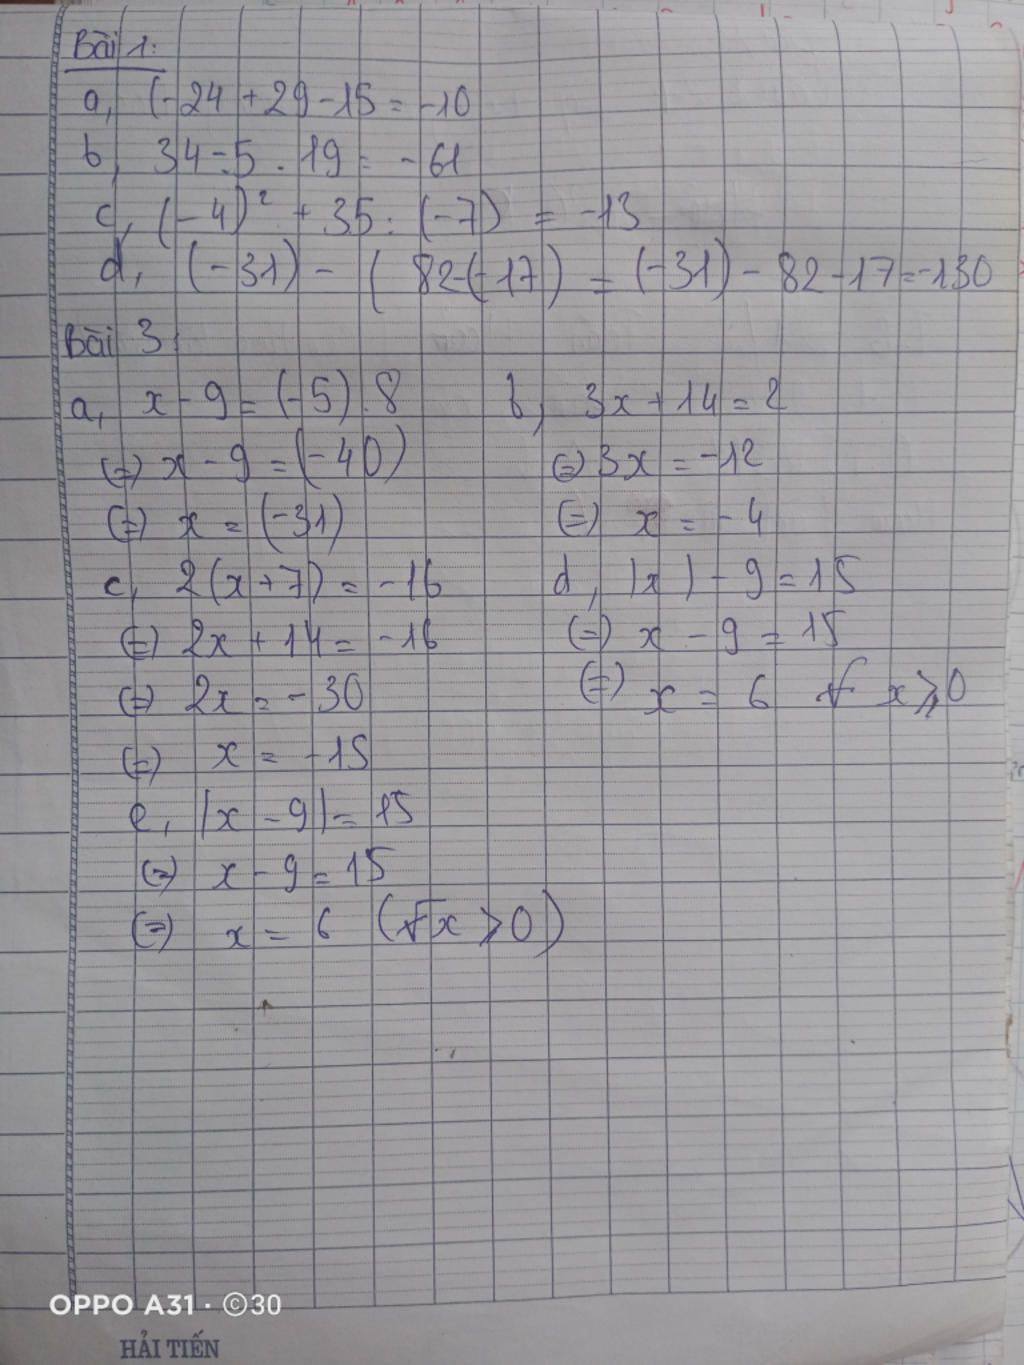 Bài 1:
a, (-24 + 29 - 15 = -10
b, 34 - 5 . 19 = -61
c, (-4)² + 35 : (-7) = -13
d, (-31) - ( 82-(-17) = (-31) - 82 - 17 = -130
Bài 3:
a, x - 9 = (-5) . 8 b, 3x + 14 = 2
(=) x - 9 = (-40) (=) 3x = -12
(=) x = (-31) (=) x = -4
c, 2(x+7) = -16 d, |x| - 9 = 15
(=) 2x + 14 = -16 (=) x - 9 = 15
(=) 2x = -30 (=) x = 6 √ x ⩾ 0
(=) x = -15
e, |x - 9| = 15
(=) x - 9 = 15
(=) x = 6 (√x ⩾ 0)
OPPO A31 · ©30
HẢI TIẾN